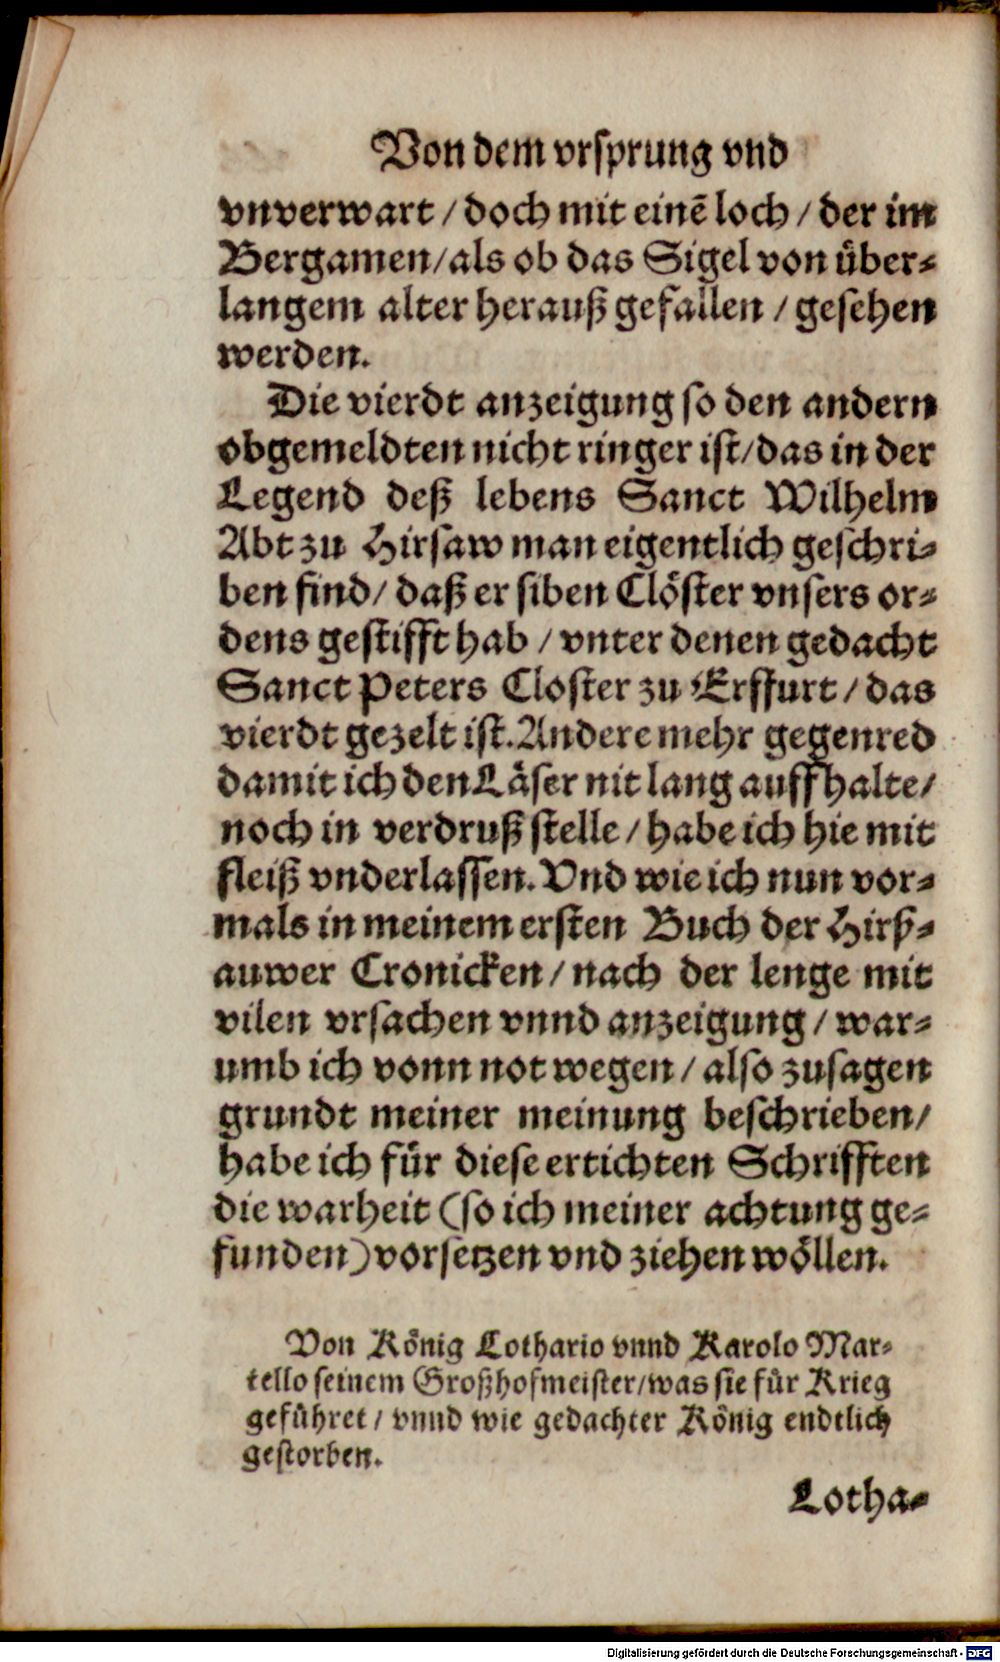 Von dem vrsprung vnd
vnverwart / doch mit einẽ loch / der im
Bergamen / als ob das Sigel von uͤber⸗
langem alter herauß gefallen / gesehen
werden.
Die vierdt anzeigung so den andern
obgemeldten nicht ringer ist / das in der
Legend deß lebens Sanct Wilhelm
Abt zu Hirsaw man eigentlich geschri⸗
ben find / daß er siben Cloͤster vnsers or⸗
dens gestifft hab / vnter denen gedacht
Sanct Peters Closter zu Erffurt / das
vierdt gezelt ist. Andere mehr gegenred
damit ich den Laͤser nit lang auffhalte /
noch in verdruß stelle / habe ich hie mit
fleiß vnderlassen. Vnd wie ich nun vor⸗
mals in meinem ersten Buch der Hirß⸗
auwer Cronicken / nach der lenge mit
vilen vrsachen vnnd anzeigung / war⸗
umb ich vonn not wegen / also zusagen
grundt meiner meinung beschrieben /
habe ich fuͤr diese ertichten Schrifften
die warheit (so ich meiner achtung ge⸗
funden) vorsetzen vnd ziehen woͤllen.
Von Koͤnig Lothario vnnd Karolo Mar⸗
tello seinem Großhofmeister / was sie fuͤr Krieg
gefuͤhret / vnnd wie gedachter Koͤnig endtlich
gestorben.
Lotha⸗
Digitalisierung gefördert durch die Deutsche Forschungsgemeinschaft - DFG